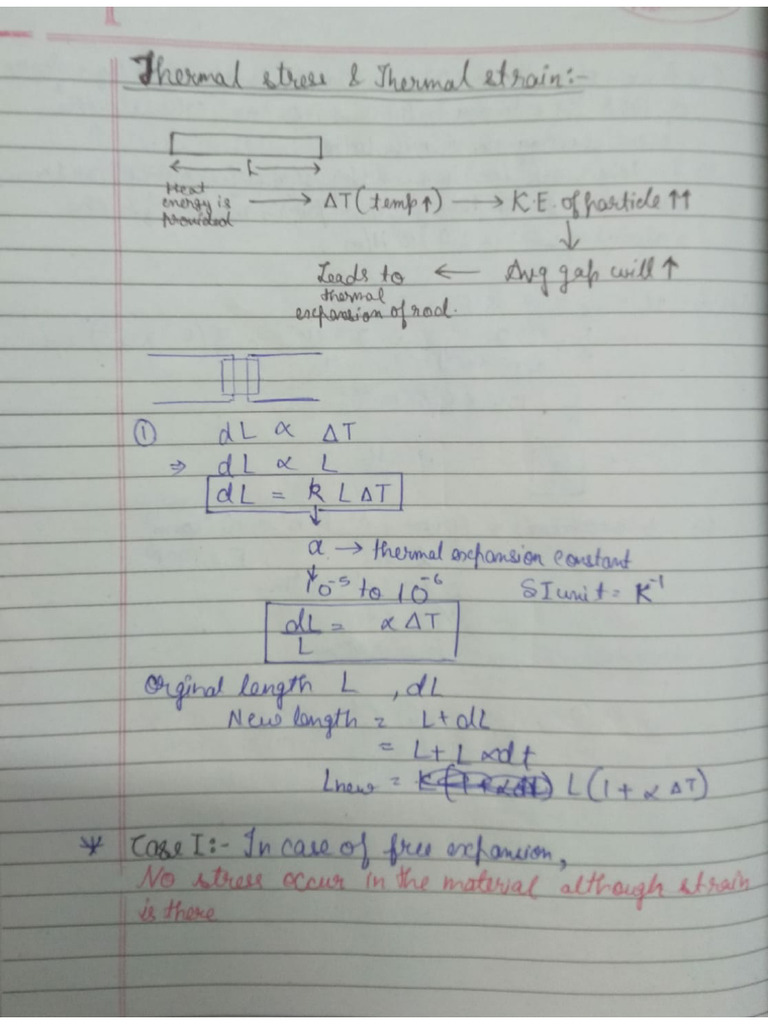 Thermal stress & Thermal strain:-
L
Heat energy is provided → ΔT (temp↑) → K.E. of particle ↑↑
↓
Leads to thermal expansion of rod. ← Avg gap will ↑
① dL ∝ ΔT
⇒ dL ∝ L
dL = k L ΔT
↓
α → thermal expansion constant
↓
10⁻⁵ to 10⁻⁶ SI unit = K⁻¹
dL/L = α ΔT
Orginal length L , dL
New length = L + dL
= L + L α dt
Lnew = L(1 + α ΔT)
* Case I:- In case of free expansion,
No stress occur in the material although strain
is there